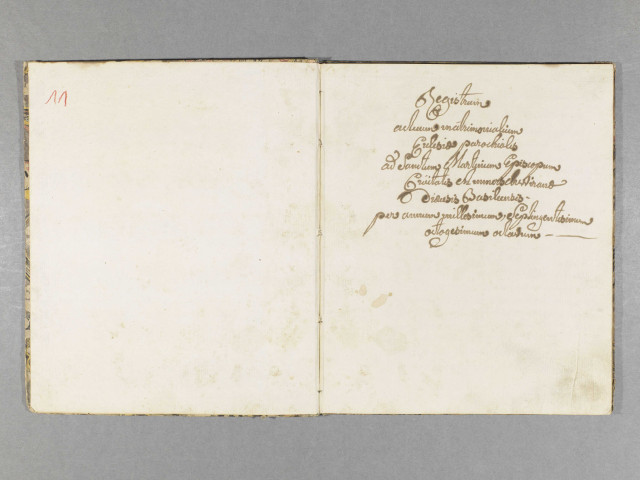 11
Registrum
actuum matrimonialium
Eclesiæ parochialis
ad Sanctum Martinum Episcopum
Civitatis
Basileensis
per annum millesimum, Septingentesimum
octogesimum octavum